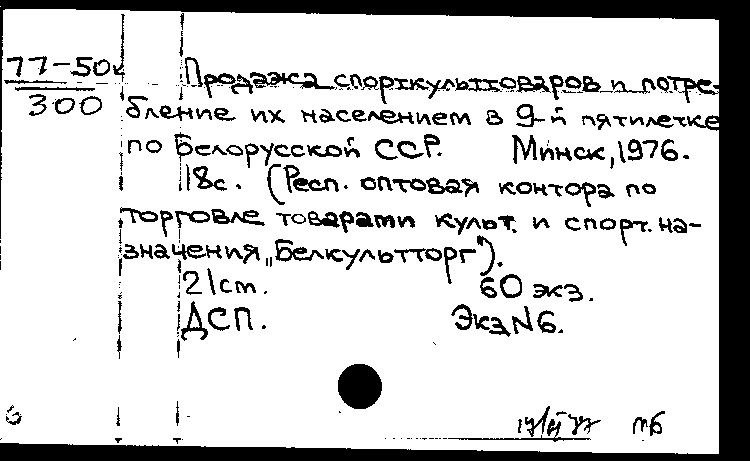 77-50к
300
Продажа спорткультоваров и потре-
бление их населением в 9-й пятилетке
по Белорусской ССР. Минск, 1976.
18с. (Респ. оптовая контора по
торговле товарами культ. и спорт. на-
значения „Белкультторг").
21cm. 60 экз.
ДСП. Экз N6.
6